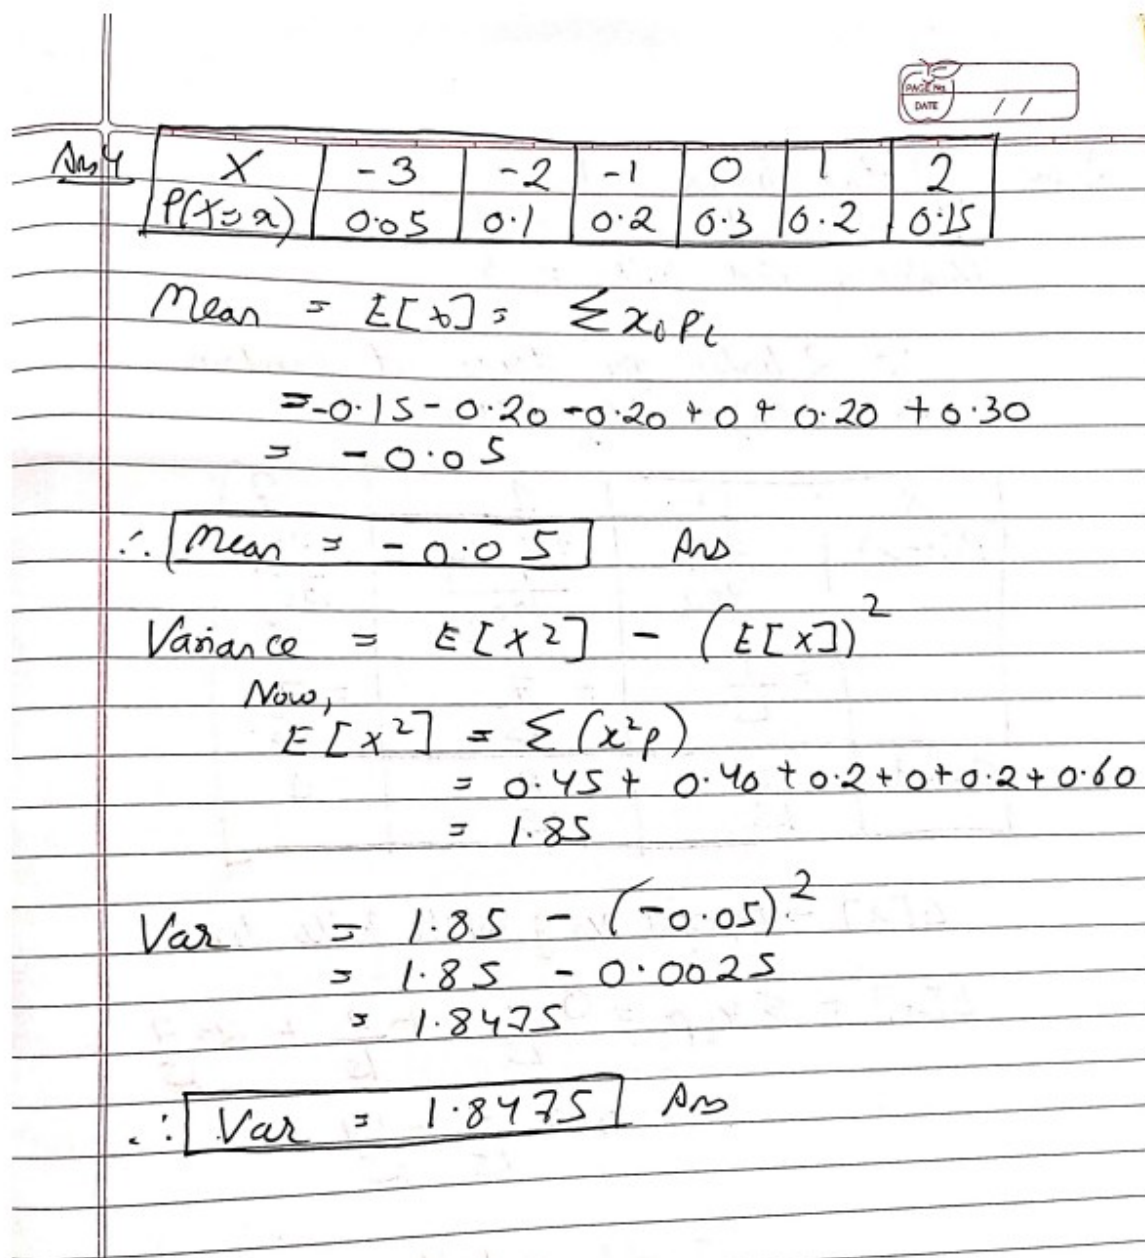 PAGE No.
DATE / /
Ans 4 X -3 -2 -1 0 1 2
P(X=x) 0.05 0.1 0.2 0.3 0.2 0.15
Mean = E[x] = Σxᵢpᵢ
= -0.15 - 0.20 - 0.20 + 0 + 0.20 + 0.30
= -0.05
∴ Mean = -0.05 Ans
Variance = E[X²] - (E[X])²
Now,
E[X²] = Σ(x²p)
= 0.45 + 0.40 + 0.2 + 0 + 0.2 + 0.60
= 1.85
Var = 1.85 - (-0.05)²
= 1.85 - 0.0025
= 1.8475
∴ Var = 1.8475 Ans